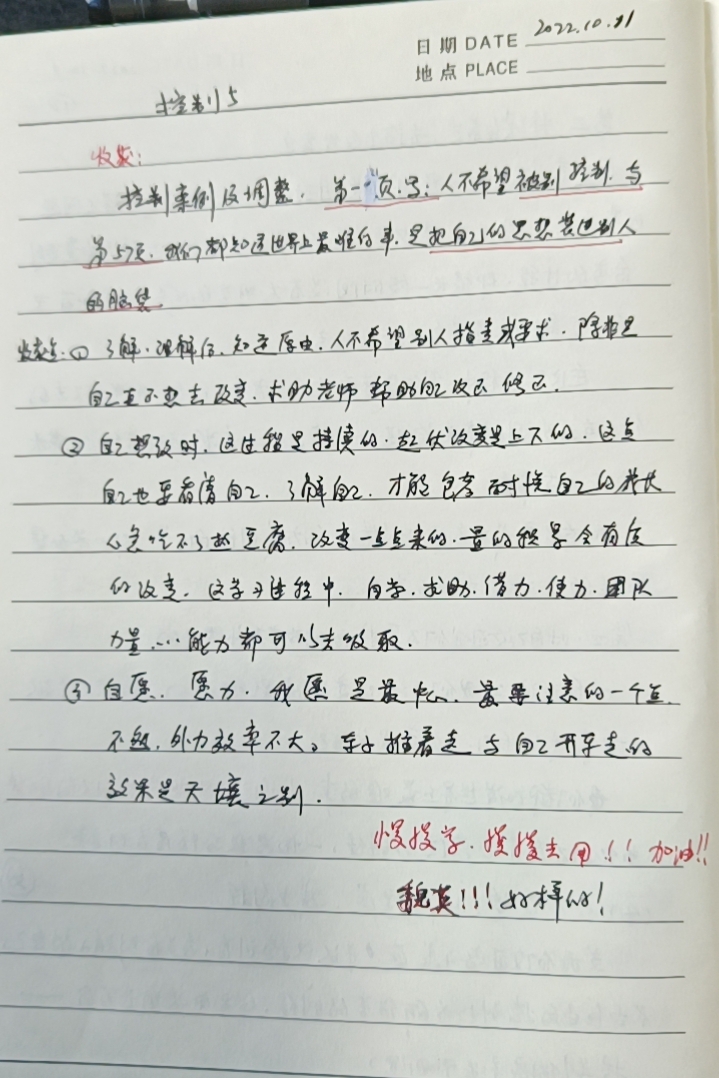 日期 DATE 2022.10.11
地点 PLACE
控制5
收获:
控制案例及调整. 第一页.写:人不希望被别控制.与
第57页.我们都知道世界上最难的事.是把自己的思想装进别人
的脑袋.
收获点.① 了解.理解后.知道原由.人不希望别人指责或要求.除非是
自己想去改变.求助老师帮助自己改正修正.
② 自己想改时.这过程是持续的.起伏改变是上下的.这点
自己也要看清自己.了解自己.才能包容耐性自己的成长
心急吃不了热豆腐.改变一点点来的.量的积累会有质
的改变.这学习过程中.自学.求助.借力.使力.团队
力量...能力都可以去吸取.
③ 自愿.愿力.我愿是最中心.最要注意的一个点.
不然.外力效率不大。车子推着走与自己开车走的
效果是天壤之别.
慢慢学.慢慢去用!!加油!!
魏英!!!好样的!